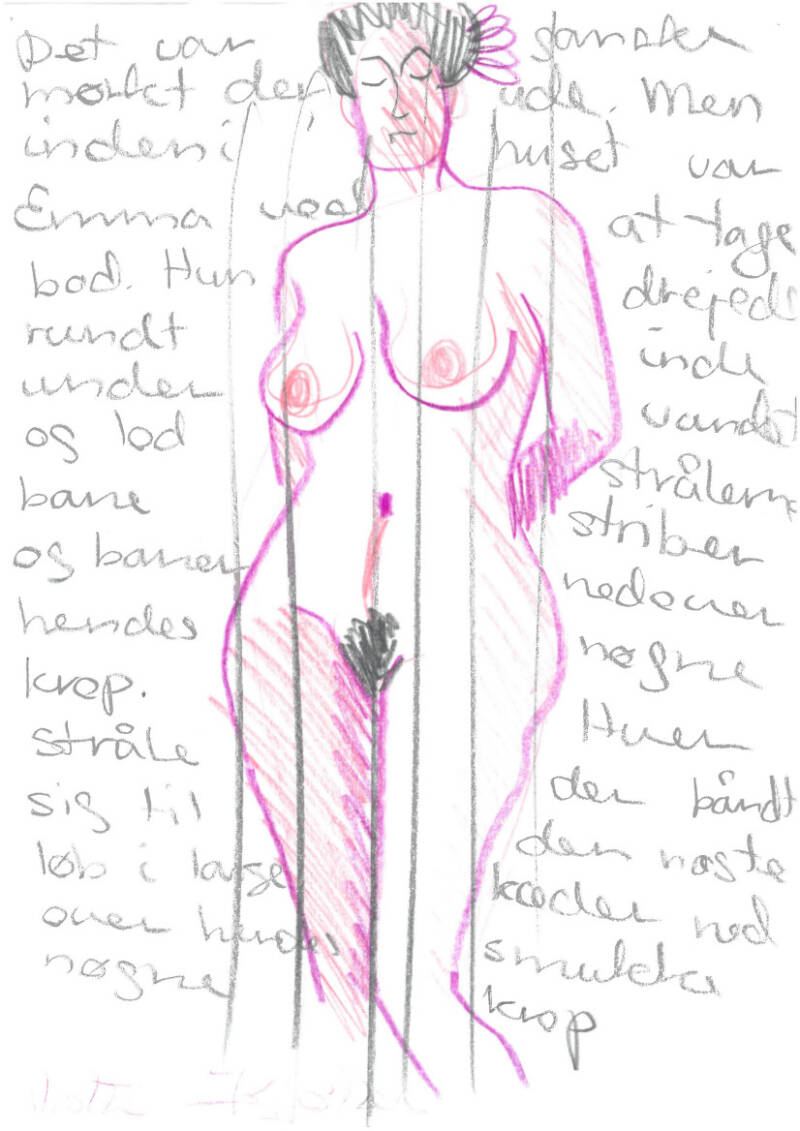 Det var ganske
mørkt der ude. Men
inden i huset var
Emma ved at tage
bad. Hun drejede
rundt inde
under vandet
og lod strålerne
bane striber
og baner nedover
hendes nøgne
krop. Hver
stråle der båndt
sig til den næste
løb i lange kæder ned
over hendes smukke
nøgne krop